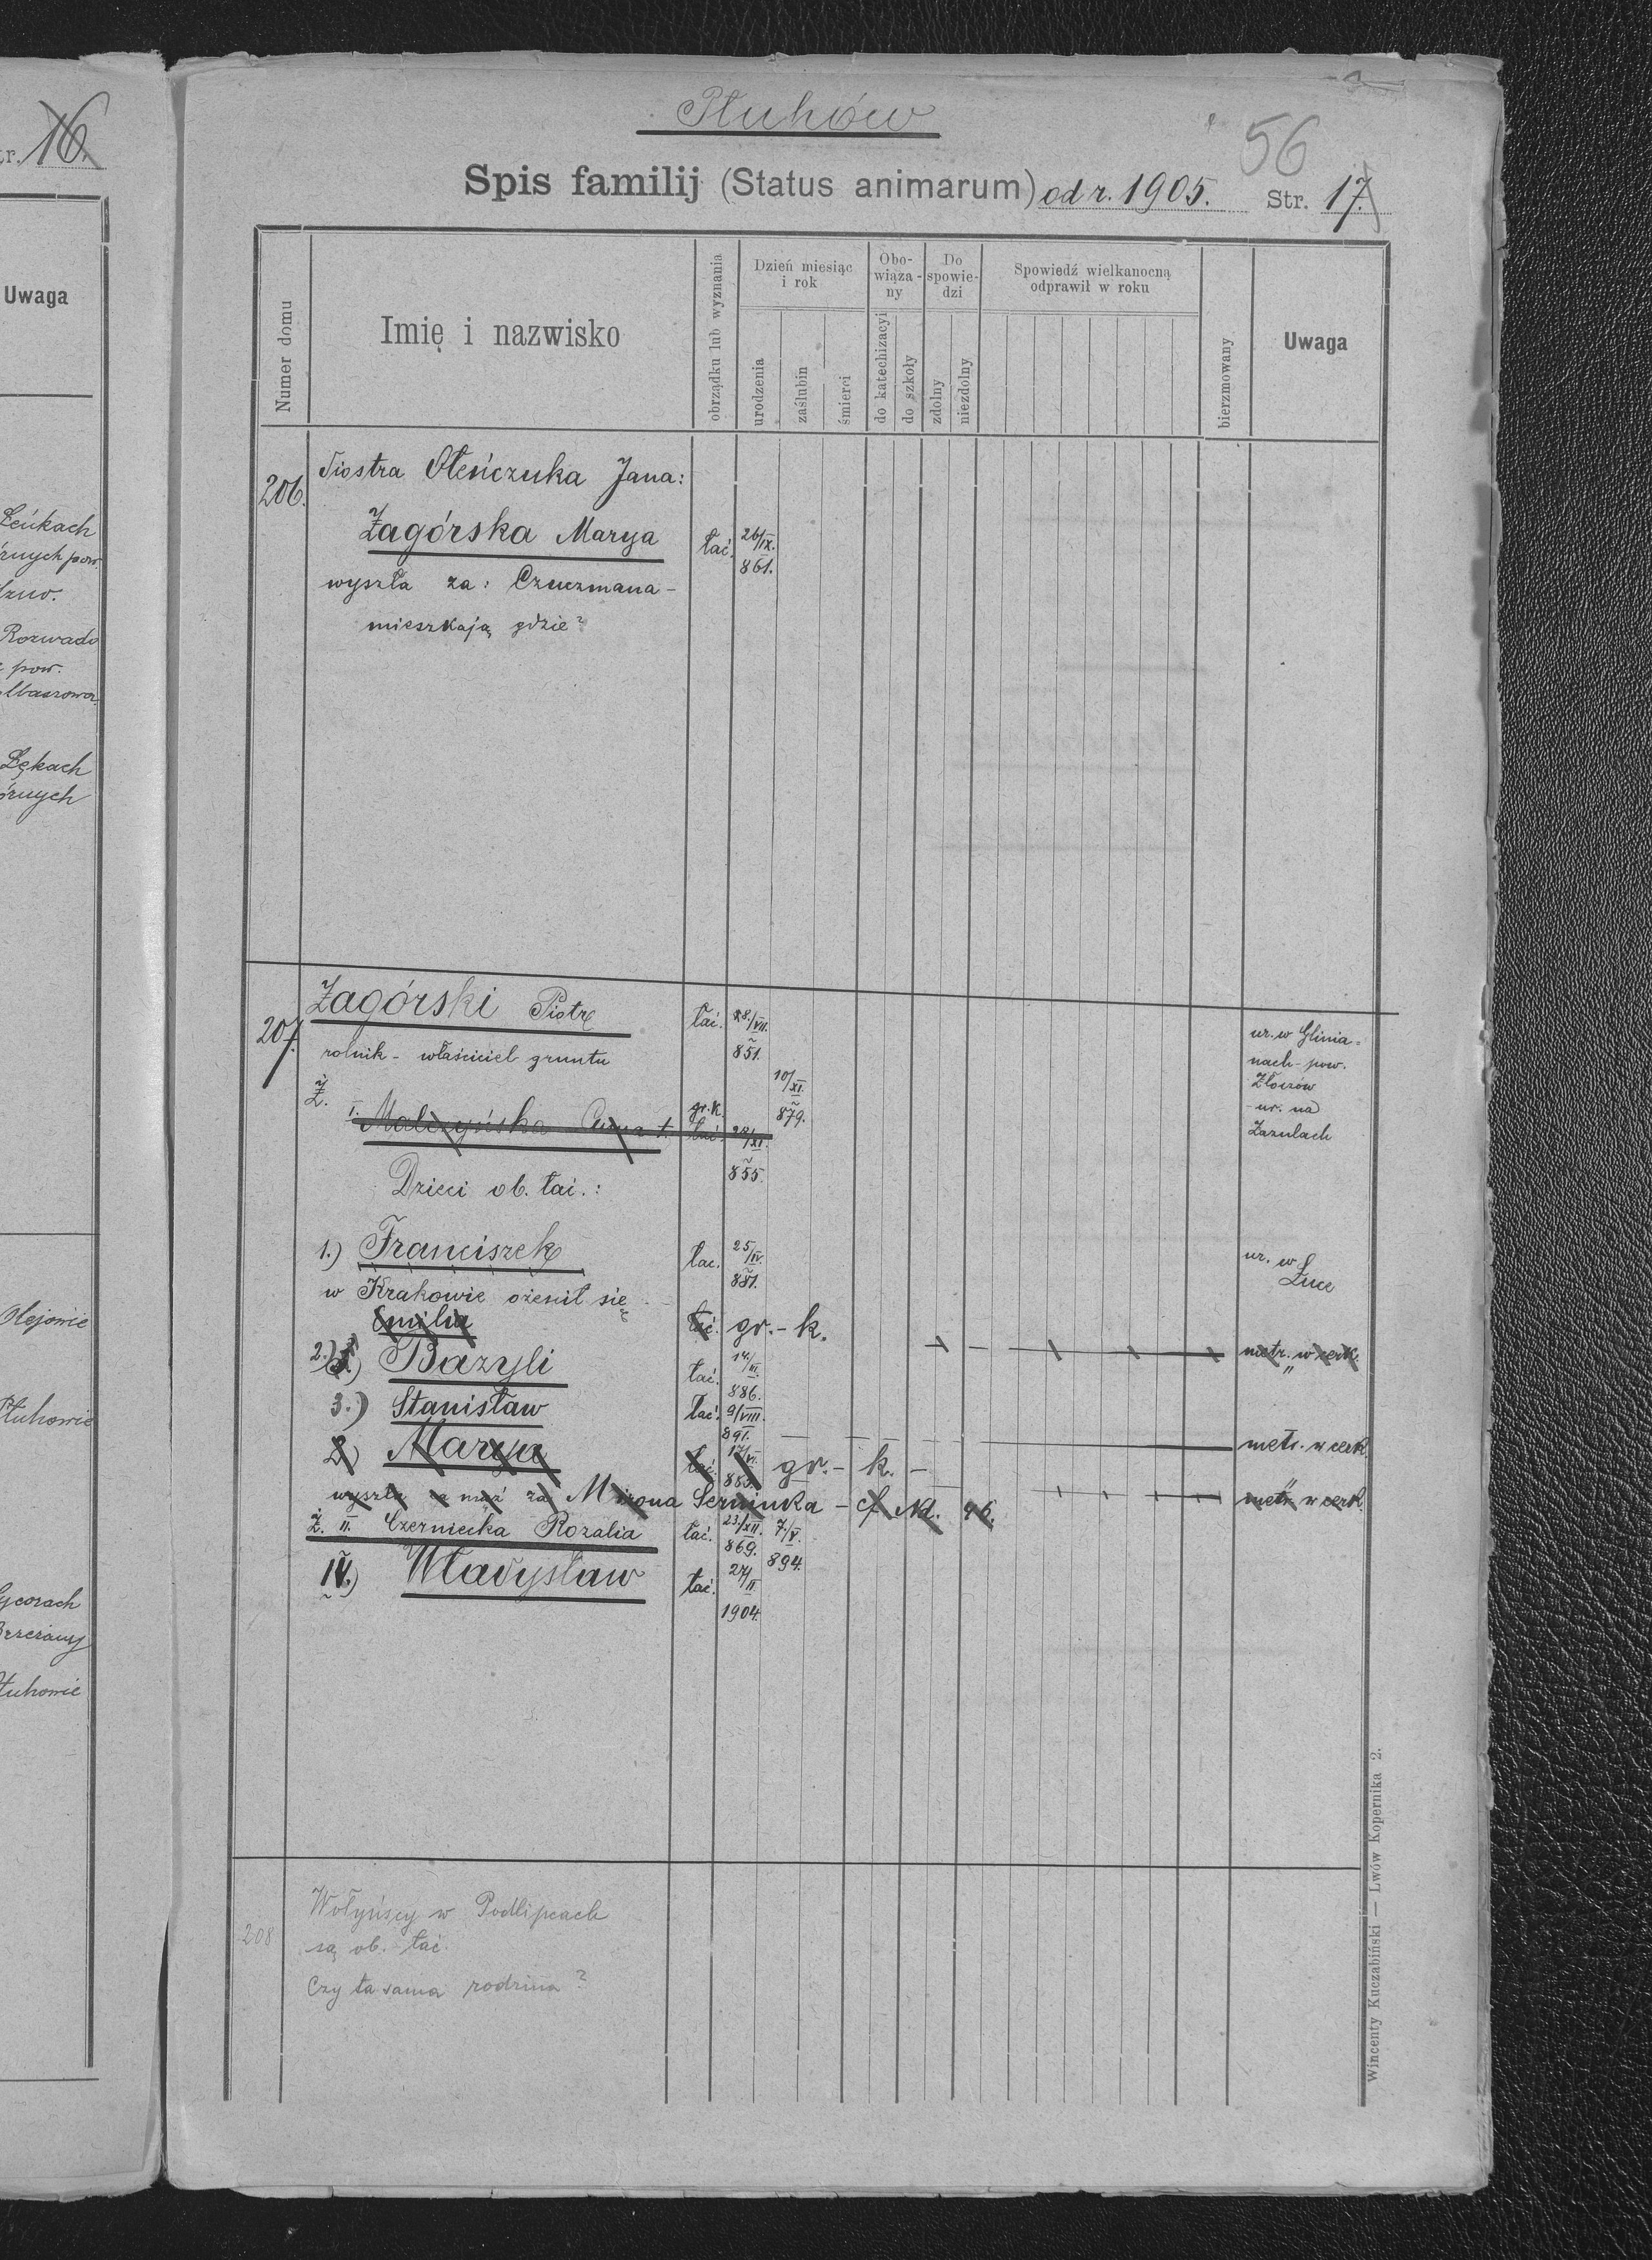 Str. 16.
Uwaga
Łękach
Rozwado
pow.
Łękach
Olejowie
Płuhowie
Płuhów
56
Spis familij (Status animarum) od r. 1905. Str. 17.
Numer domu
Imię i nazwisko
obrządku lub wyznania
Dzień miesiąc i rok
urodzenia
zaślubin
śmierci
Obo-wiąza-ny
do katechizacyi
do szkoły
Do spowie-dzi
zdolny
niezdolny
Spowiedź wielkanocną odprawił w roku
bierzmowany
Uwaga
206. Siostra Oleńczuka Jana:
Zagórska Marya łać. 26/IX. 861.
wyszła za: Czuczmana -
mieszkają gdzie?
207. Zagórski Piotr łać. 28./VII. 851. ur. w Glinia=
rolnik - właściciel gruntu nach - pow.
Złoczów
10/XI. 879.
Ż. I. Malczyńska Anna †. gr.k. łać. 28/XI. 855. - ur. na
Zazulach
Dzieci ob. łać.:
1.) Franciszek łac. 25/IV. 881. ur. w Łuce
w Krakowie ożenił się
Emilia łać. gr.-k. metr. w cerk.
2.) Bazyli łać. 14./III. 886. "
3.) Stanisław łać. 9/VIII. 891. metr. w cerk.
2.) Marya łać. 17/VI. 883. gr.-k. - "
wyszła za mąż za Mirona Serniuka - cf Nd. 46. metr. w cerk.
Ż. II. Czerniecka Rozalia łać. 23./XII. 869. 7/V. 894.
IV.) Władysław łać. 27/II 1904.
208 Wołyńscy w Podlipcach
są ob. łać.
Czy ta sama rodzina?
Wincenty Kuczabiński — Lwów Kopernika 2.